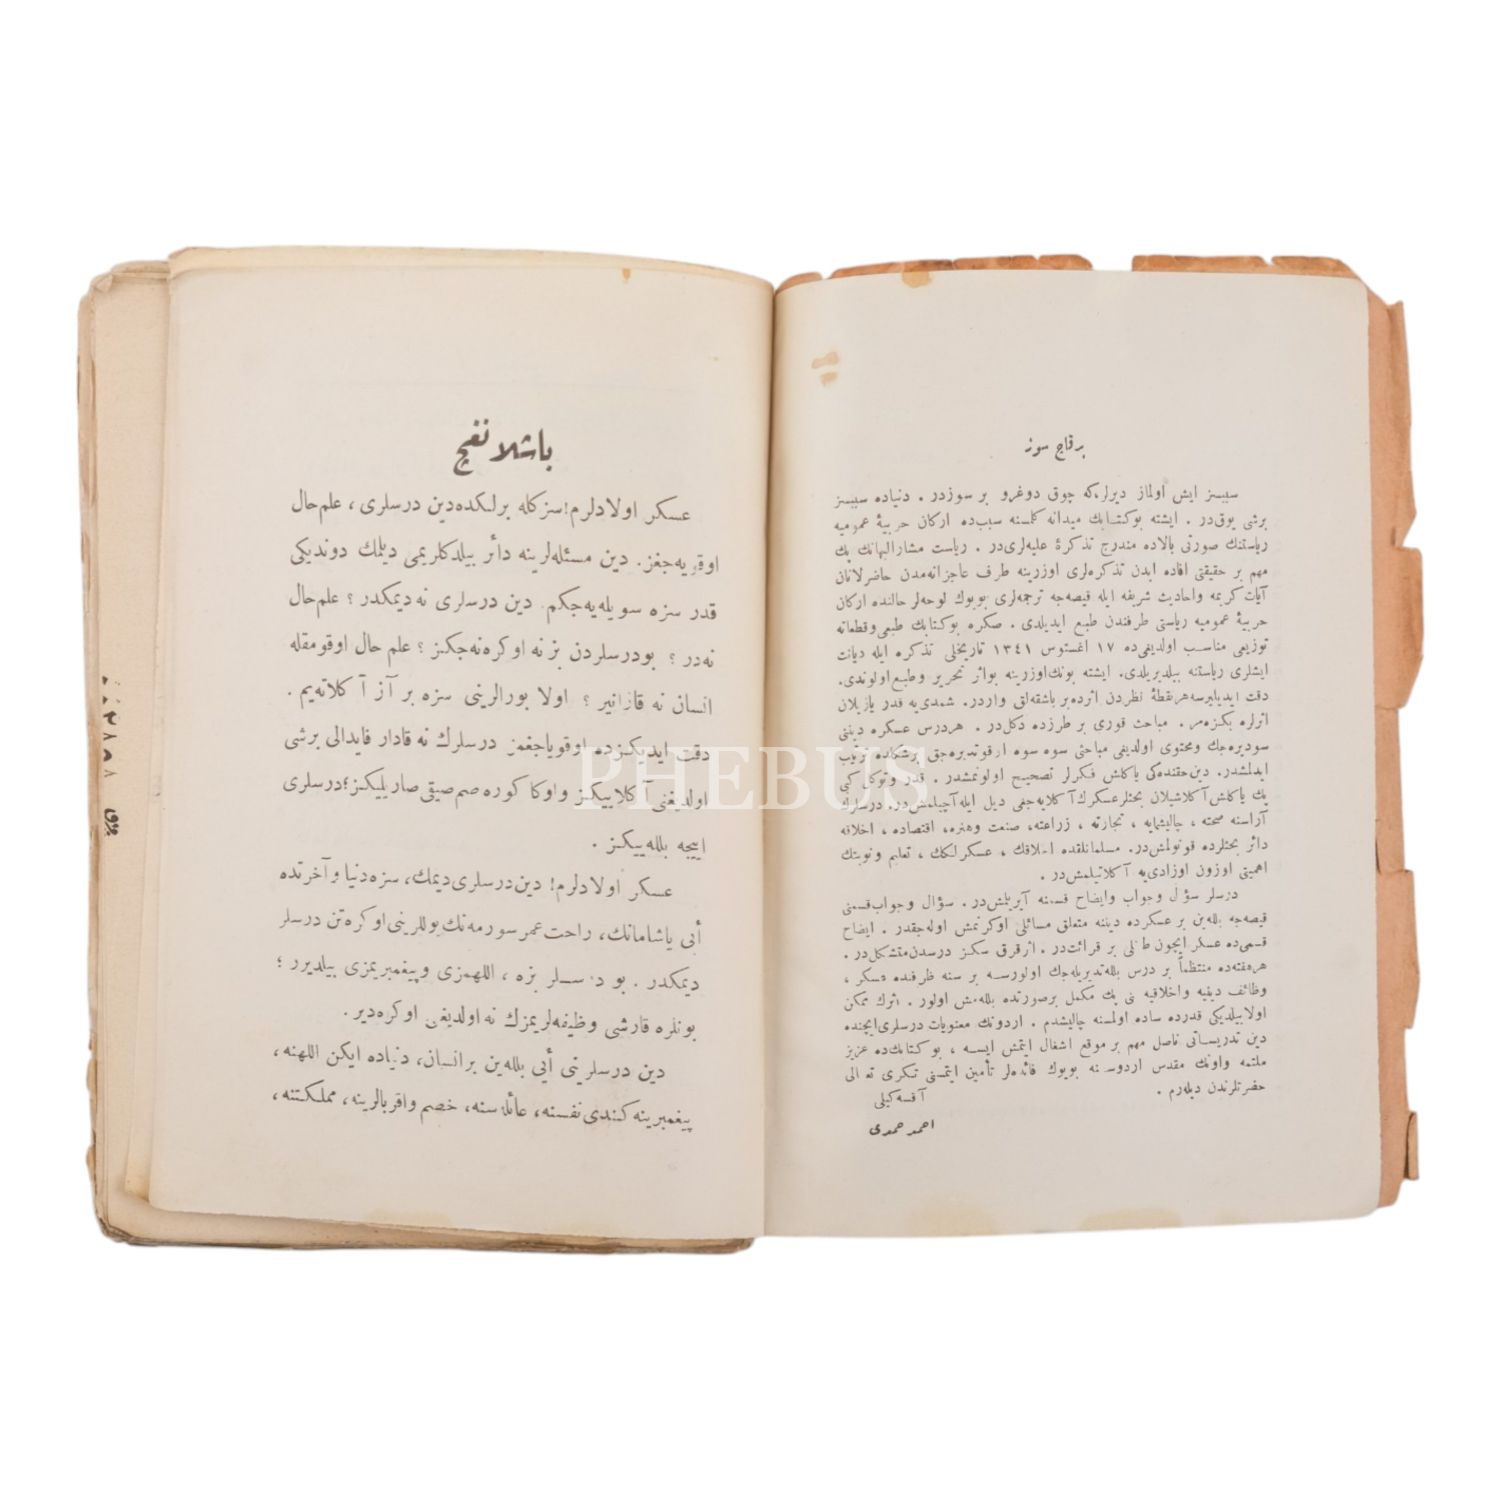 بر قاچ سوز
سببسز ایش اولماز دیرلرکه چوق دوغرو بر سوزدر . دنیاده سببسز
برشی یوق‌در . ایشته بوکتابك میدانه کلمسنه سبب‌ده ارکان حربیۀ عمومیه
ریاستنك صورتی بالاده مندرج تذکرۀ علیه‌لری‌در . ریاست مشارالیهانك پك
مهم بر حقیقتی افاده ایدن تذکره‌لری اوزرینه طرف عاجزانه‌مدن حاضرلانان
آیات کریمه واحادیث شریفه ایله قیصه‌جه ترجمه‌لری بویوك لوحه‌لر حالنده ارکان
حربیۀ عمومیه ریاستی طرفندن طبع ایدیلدی . صکره بوکتابك طبعی وقطعاته
توزیعی مناسب اولدیغی‌ده ١٧ اغستوس ١٣٤١ تاریخلی تذکره ایله دیانت
ایشلری ریاستنه بیلدیریلدی. ایشته بونك‌اوزرینه بواثر تحریر وطبع‌اولوندی.
دقت ایدیلیرسه‌هرنقطۀ نظردن اثرده‌بر باشقه‌لق واردر. شمدی‌یه قدر یازیلان
اثرلره بکزه‌مز . مباحث قوری بر طرزده دکل‌در . هردرس عسکره دیننی
سودیره‌جك ومحتوی اولدیغی مباحثی سوه سوه اوقوتدیره‌جق برشکلده ترتیب
ایدلمشدر. دین‌حقنده‌کی یاکلش فکرلر تصحیح اولونمشدر . قدر وتوکل کبی
پك یاکلش‌آکلاشیلان بحثلرعسکرك‌آکلایه‌جغی دیل ایله‌آچیلمش‌در. درسلرك
آراسنه صحته ، چالیشمایه ، تجارته ، زراعته، صنعت وهنره، اقتصاده ، اخلاقه
دائر بحثلرده قونولمش‌در. مسلمانلقده اخلاقك ، عسکرلکك ، تعلیم ونوبتك
اهمیتی اوزون اوزادی‌یه آکلاتیلمش‌در .
درسلر سؤال وجواب وایضاح قسمنه آیریلمش‌در . سؤال وجواب‌قسمنی
قیصه‌جه بلله‌ین بر عسکرده دیننه متعلق مسائلی اوکرنمش اوله‌جقدر . ایضاح
قسمی‌ده عسکر ایچون طاتلی بر قرائت‌در . اثرقرق سکز درسدن‌متشکل‌در .
هرهفته‌ده منتظماً بر درس بلله‌تدیریله‌جك اولورسه بر سنه ظرفنده عسکر ،
وظائف دینیه واخلاقیه نی پك مکمل برصورتده بلله‌مش اولور . اثرك ممکن
اولابیلدیکی قدرده ساده اولمسنه چالیشدم . اردونك معنویات درسلری‌ایچنده
دین تدریساتی ناصل مهم بر موقع اشغال ایتمش ایسه ، بوکتابك‌ده عزیز
ملتمه واونك مقدس اردوسنه بویوك فائده‌لر تأمین ایتمسنی تکری تعالی
حضرتلرندن دیله‌رم .
آقسه‌کیلی
احمد حمدی
باشلانغیج
عسکر اولادلرم! سزکله برلکده‌دین درسلری ، علم‌حال
اوقویه‌جغز. دین مسئله‌لرینه دائر بیلدکلریمی دیلمك دوندیکی
قدر سزه سویله‌یه‌جکم. دین درسلری نه‌دیمکدر ؟ علم‌حال
نه‌در ؟ بودرسلردن بزنه اوکره‌نه‌جکز ؟ علم حال اوقومقله
انسان نه قازانیر ؟ اولا بورالرینی سزه بر آز آکلاته‌یم .
دقت ایدیکزده اوقویاجغمز درسلرك نه قادار فایدالی برشی
اولدیغنی آکلاییکز واوکا کوره صم‌صیقی صاریلیکز؛ درسلری
ایبجه بلله‌ییکز .
عسکر اولادلرم! دین‌درسلری‌دیمك، سزه‌دنیا وآخرتده
أیی یاشامانك، راحت‌عمرسورمه‌نك‌یوللرینی‌اوکره‌تن درسلر
دیمکدر . بو درسلر بزه ، اللهمزی وپیغمبریمزی بیلدیرر ؛
بونلره قارشی وظیفه‌لریمزك نه‌اولدیغنی اوکره‌دیر.
دین درسلرینی أیی بلله‌ین برانسان، دنیاده ایکن اللهنه ،
پیغمبرینه‌کندی نفسنه، عائله‌سنه، خصم واقربالرینه، مملکتنه،
PHEBUS